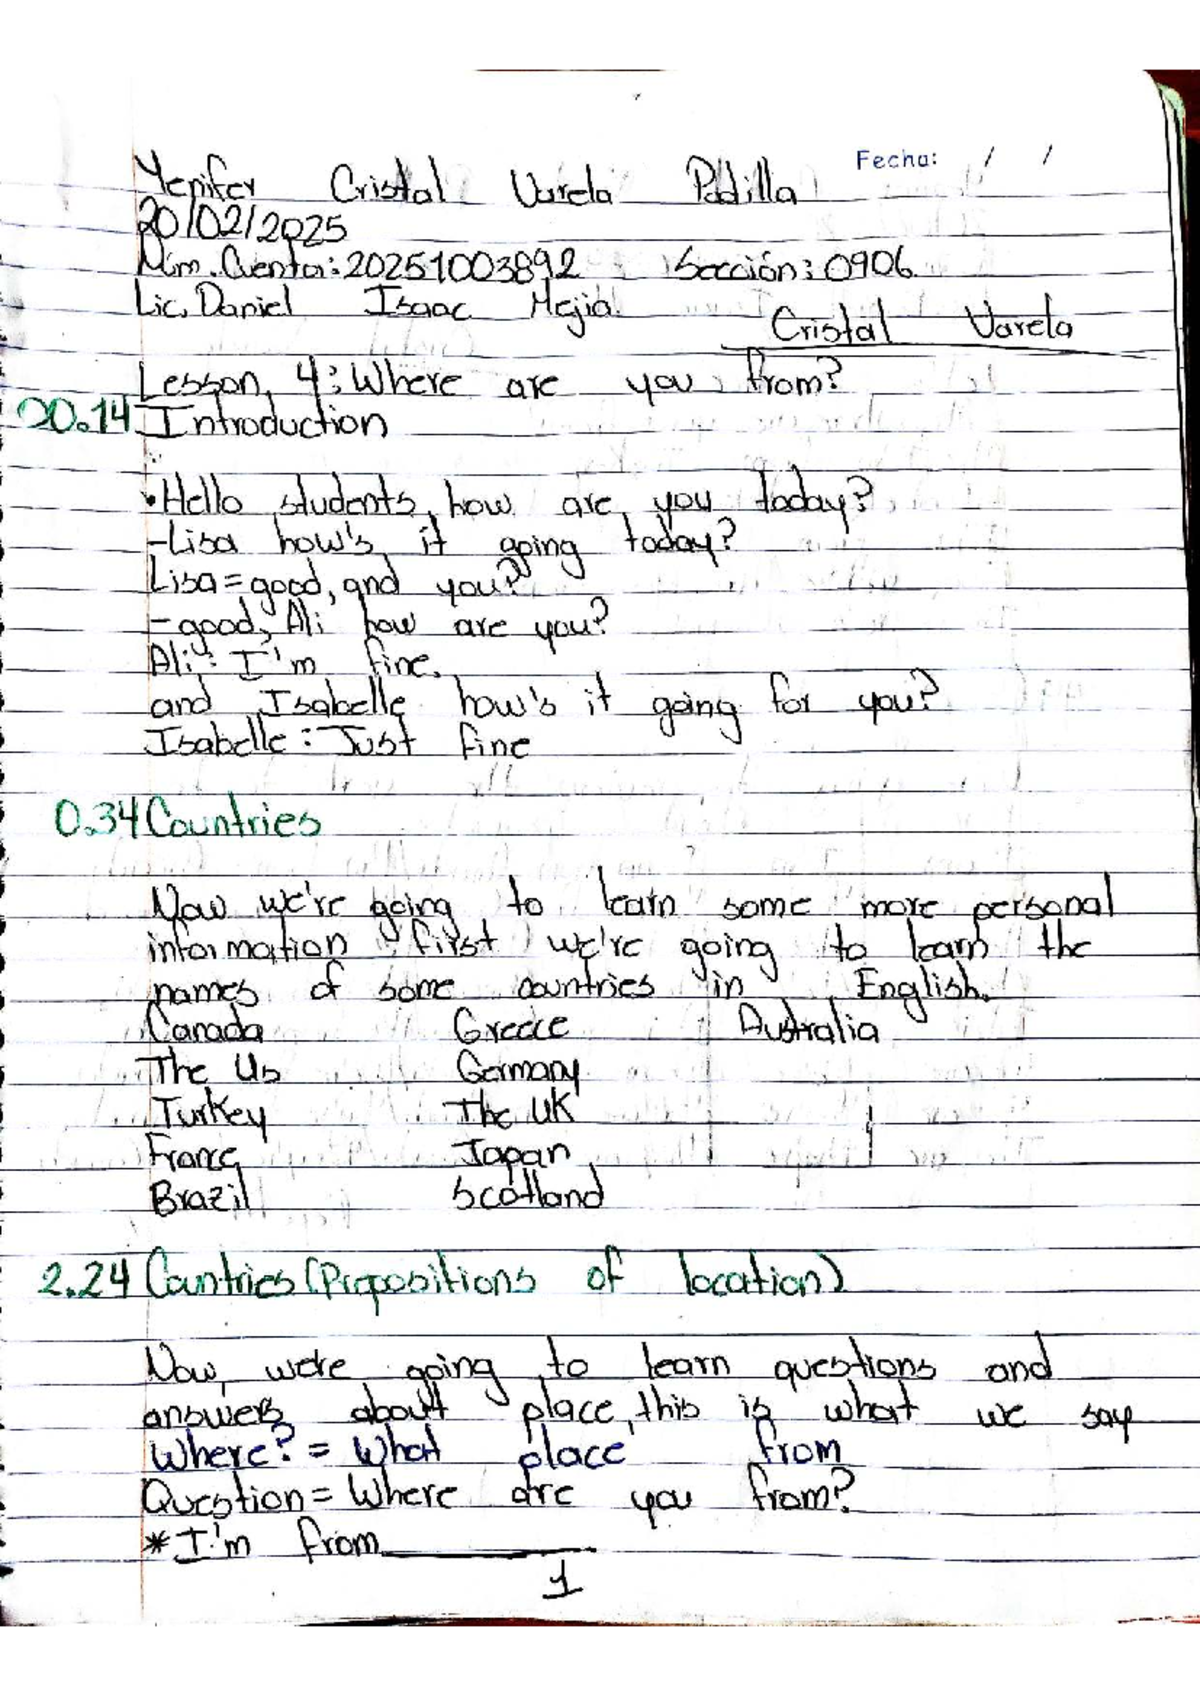 Fecha: / /
Yenifer Cristal Varela Padilla
20/02/2025
Núm. Cuenta: 20251003892 Sección: 0906
Lic. Daniel Isaac Mejia.
Cristal Varela
Lesson, 4: Where are you from?
00.14 Introduction
•Hello students, how are you today?
-Lisa how's it going today?
Lisa = good, and you?
- good, Ali how are you?
Ali: I'm fine.
and Isabelle how's it going for you?
Isabelle: Just fine
0.34 Countries
Now we're going to learn some more personal
information first we're going to learn the
names of some countries in English.
Canada Greece Australia
The Us Germany
Turkey The UK
France Japan
Brazil Scotland
2.24 Countries (Prepositions of location)
Now, we're going to learn questions and
answers about place, this is what we say
Where? = What place from
Question = Where are you from?
* I'm from ______
1